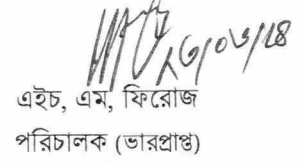 ২৬/০৬/১৪
এইচ, এম, ফিরোজ
পরিচালক (ভারপ্রাপ্ত)